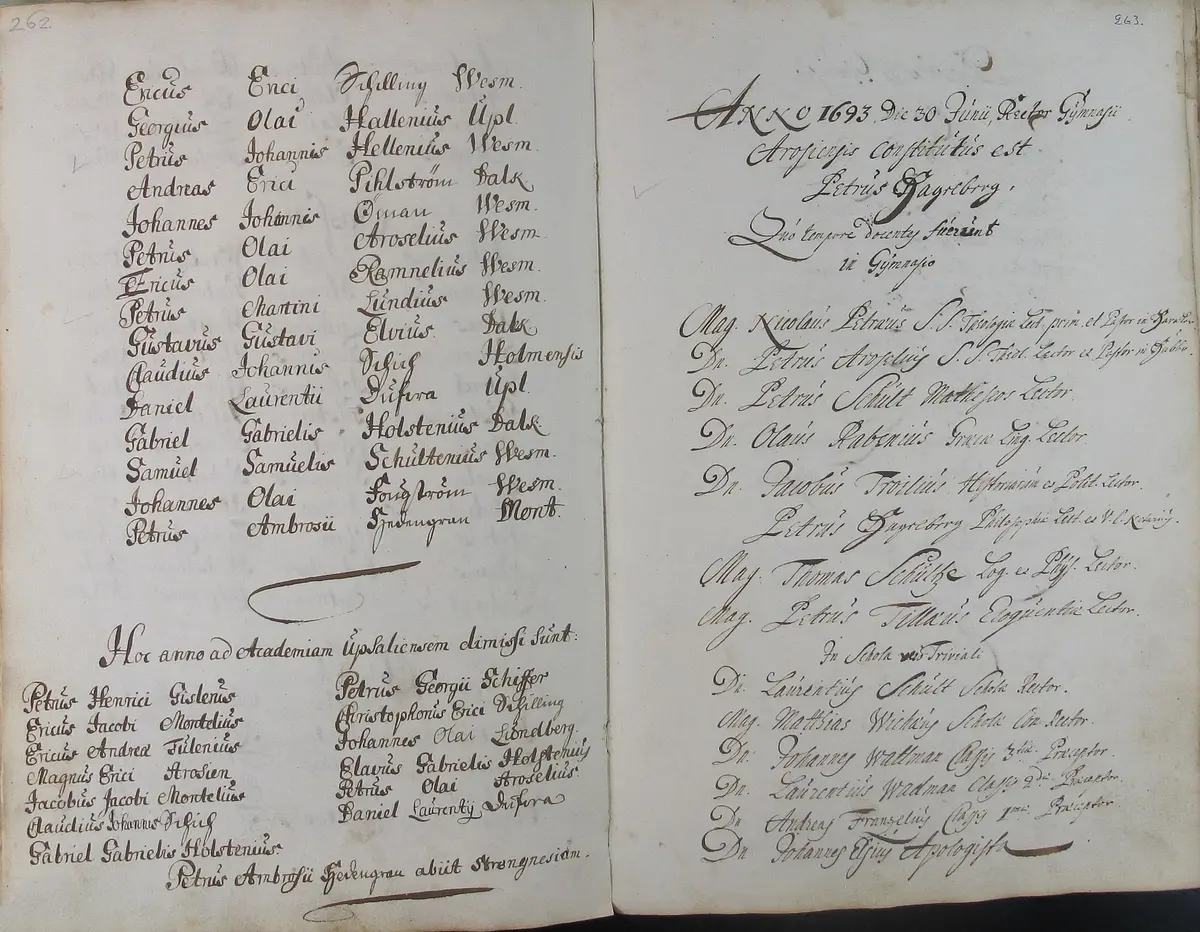 262.
Ericus Erici Schilling Wesm.
Georgius Olai Hallenius Upl.
Petrus Johannis Hellenius Wesm.
Andreas Erici Pihlström Dalk
Johannes Johannis Öman Wesm.
Petrus Olai Aroselius Wesm.
Ericus Olai Ramnelius Wesm.
Petrus Martini Lundius Wesm.
Gustavus Gustavi Elvius Dalk
Claudius Johannis Schich Holmensis
Daniel Laurentii Dufwa Upl.
Gabriel Gabrielis Holstenius Dalk
Samuel Samuelis Schultenius Wesm.
Johannes Olai Wesm.
Petrus Ambrosii Hedengran Mont.
Hoc anno ad Academiam Upsaliensem dimissi sunt:
Petrus Henrici Gislenus
Ericus Jacobi Montelius
Ericus Andreæ Tulenius
Magnus Erici Arosien
Jacobus Jacobi Montelius
Claudius Johannis Schich
Gabriel Gabrielis Holstenius
Petrus Georgii Schiffer
Christophorus Erici Schilling
Johannes Olai Lundberg.
Elavus Gabrielis Holstenius
Petrus Olai Aroselius
Daniel Laurentij Dufwa
Petrus Ambrosii Hedengran abiit Strengnesiam.
263.
ANNO 1693. Die 30 Junii, Rector Gymnasii
Arosiensis constitutus est
Petrus Hagreberg.
Quo tempore docentes fuerunt
in Gymnasio
Mag. Nicolaus Petræus S. S. Theologiæ Lect. prim. et Pastor in
Dn. Petrus Aroselius S. S. Theol. Lector et Pastor in
Dn. Petrus Schult Matheseos Lector.
Dn. Olaus Rabenius Græcæ Ling. Lector
Dn. Jacobus Troilius Historiarum et Polit. Lector.
Petrus Hagreberg Philosophiæ Lect. et V. C. Notarius.
Mag. Thomas Schultze Log. et Phys. Lector.
Mag. Petrus Tillæus Eloquentiæ Lector.
In Schola Triviali
Dn. Laurentius Schult Scholæ Rector.
Mag. Matthias Scholæ Con Rector.
Dn. Johannes Wattman Classis 3tiæ Præceptor.
Dn. Laurentius Wadman Classis 2dæ Præceptor.
Dn Andreas Franzelius Classis 1mæ Præceptor
Dn Johannes Elsius Apologista